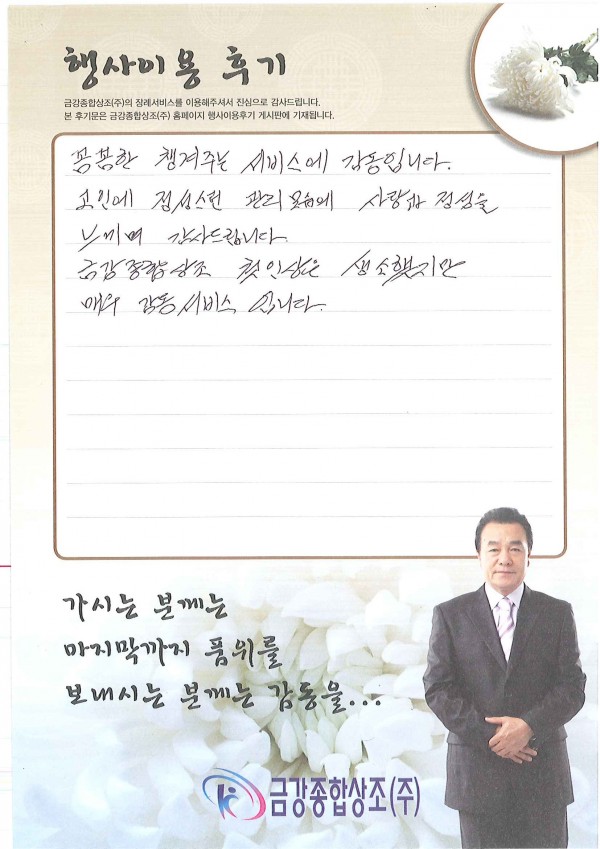 행사이용 후기
금강종합상조(주)의 장례서비스를 이용해주셔서 진심으로 감사드립니다.
본 후기문은 금강종합상조(주) 홈페이지 행사이용후기 게시판에 기재됩니다.
꼼꼼한 챙겨주는 서비스에 감동입니다.
고인에 정성스런 관리 모습에 사랑과 정성을
느끼며 감사드립니다.
금강종합상조 첫인상은 생소했지만
매우 감동서비스 입니다.
가시는 분께는
마지막까지 품위를
보내시는 분께는 감동을...
금강종합상조(주)